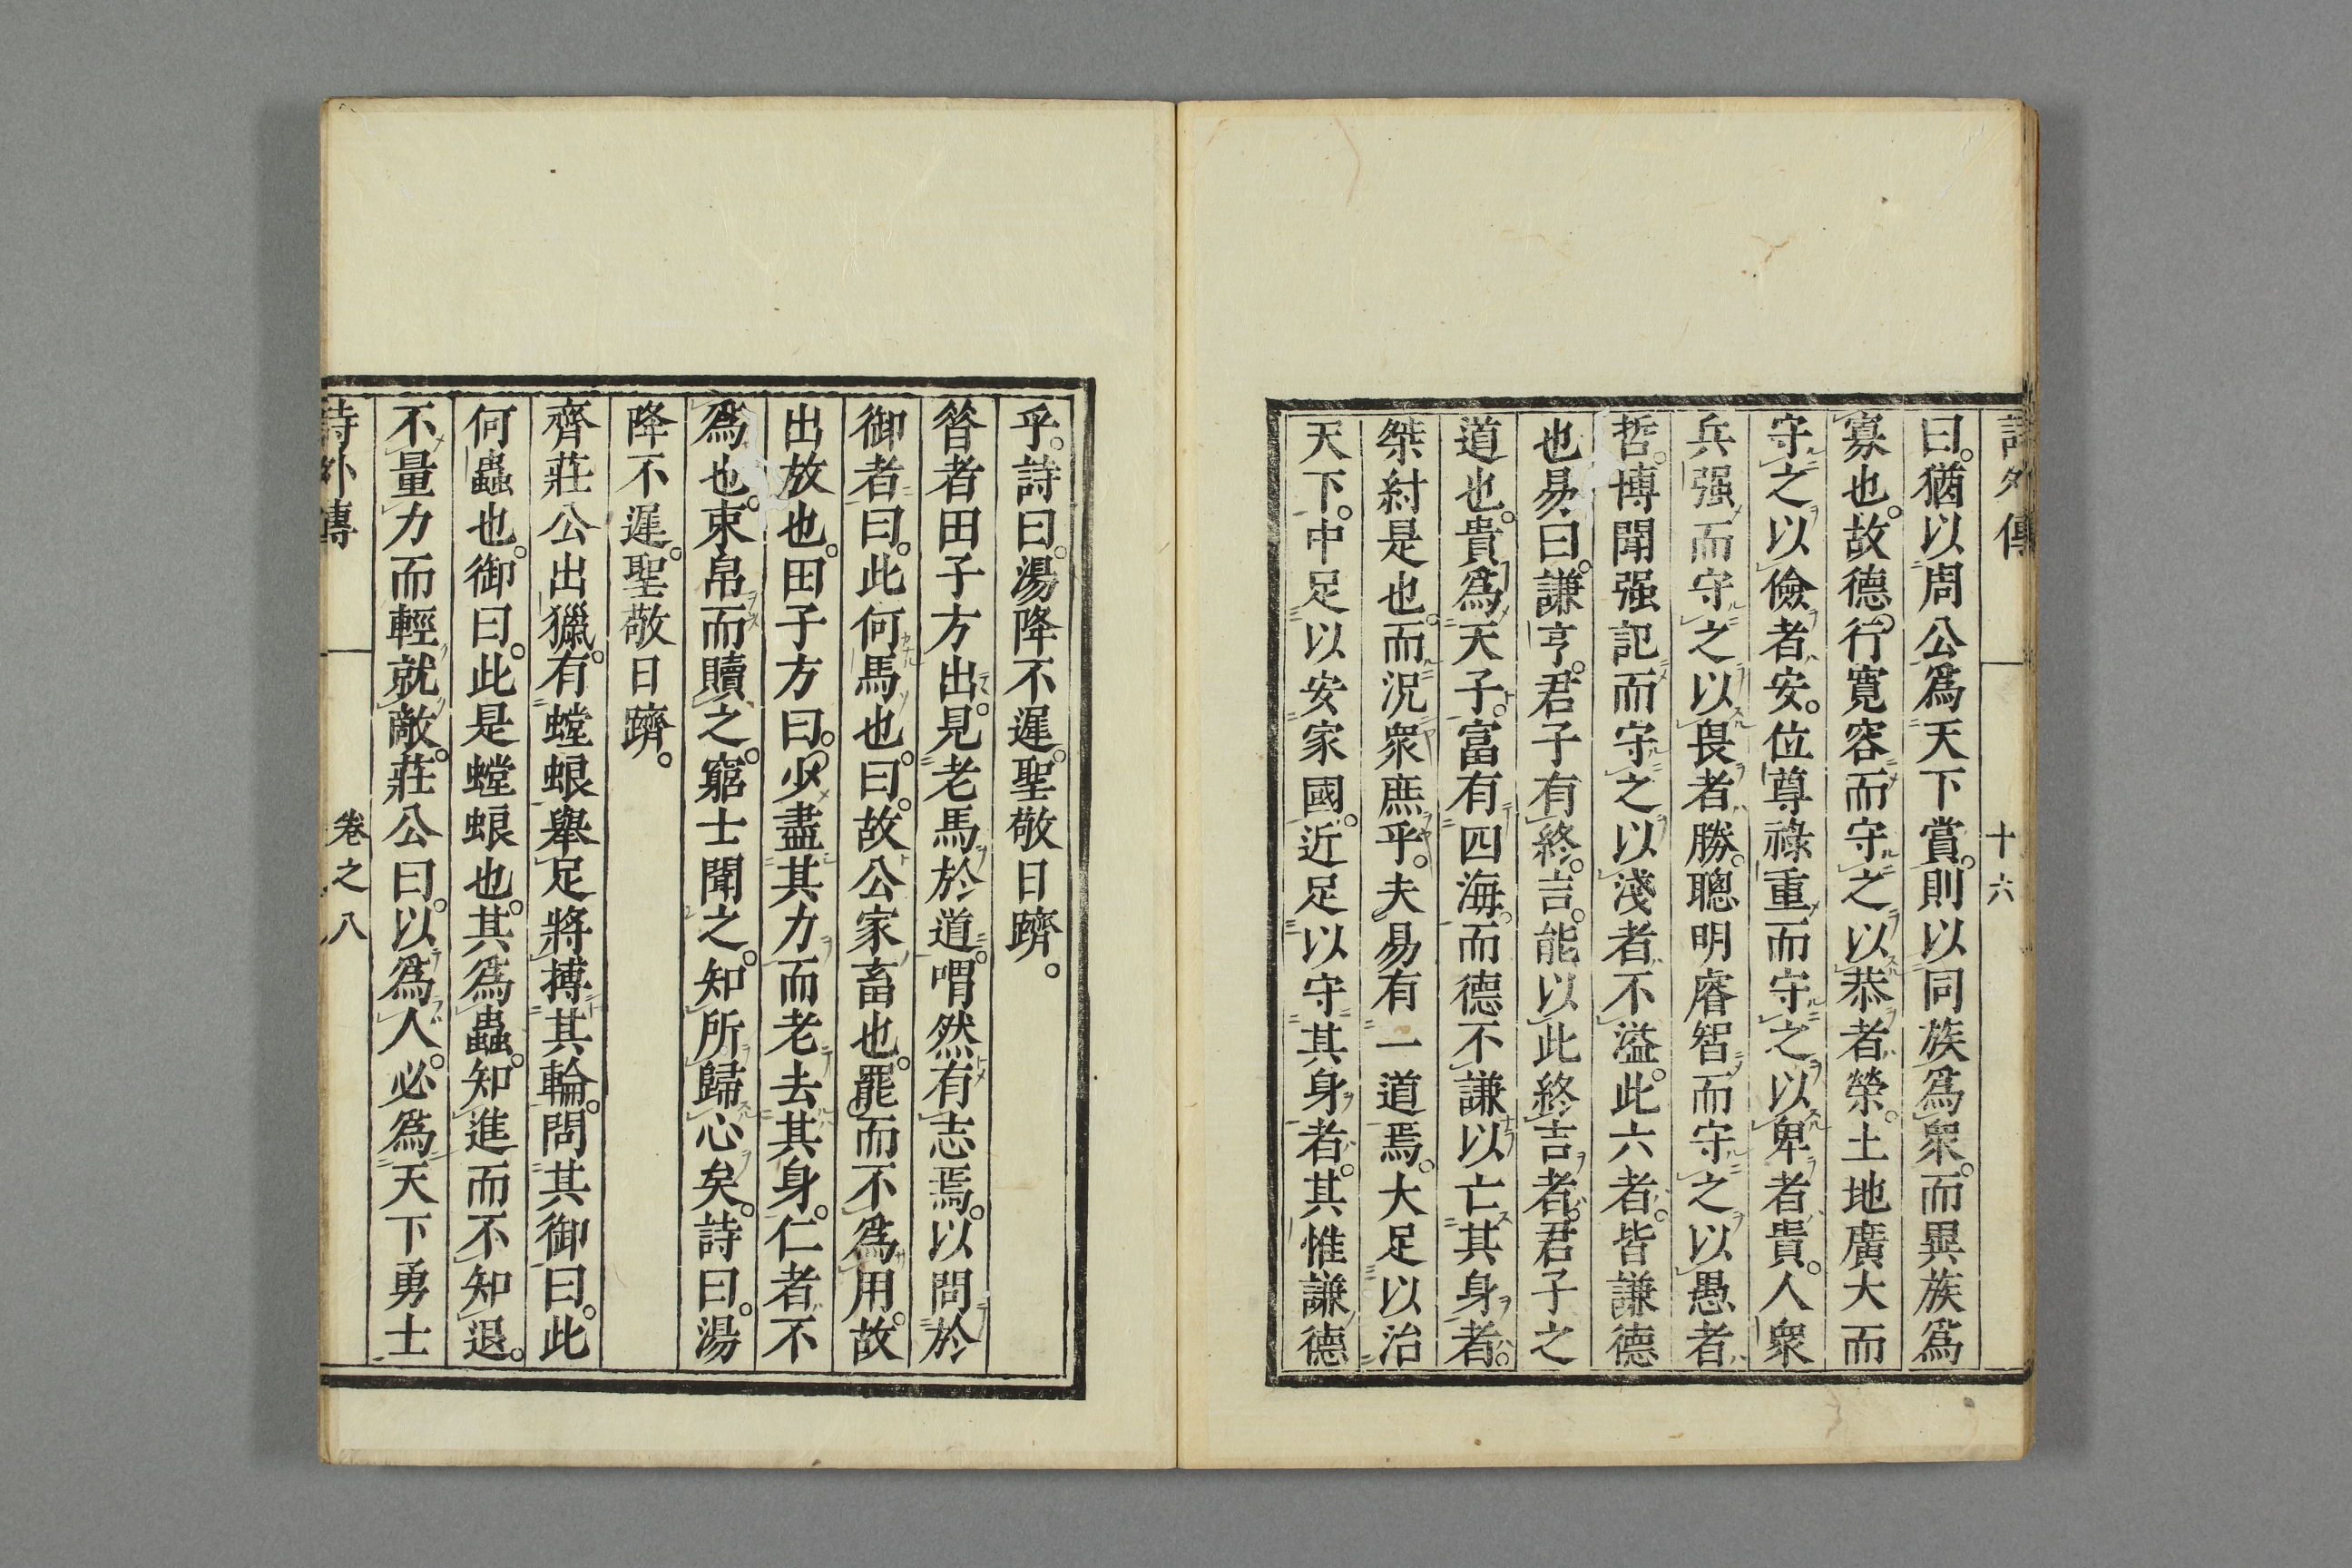 詩外傳
十六
曰。猶以周公爲天下賞。則以同族爲衆。而異族爲
寡也。故德行寬容而守之以恭者榮。土地廣大而
守之以儉者安。位尊祿重而守之以卑者貴。人衆
兵强而守之以畏者勝。聰明睿智而守之以愚者
哲。博聞强記而守之以淺者不溢。此六者。皆謙德
也。易曰。謙亨。君子有終。吉。能以此終吉者。君子之
道也。貴爲天子。富有四海。而德不謙以亡其身者。
桀紂是也。而況衆庶乎。夫易有一道焉。大足以治
天下。中足以安家國。近足以守其身者。其惟謙德
乎。詩曰。湯降不遲。聖敬日躋。
昝者田子方出。見老馬於道。喟然有志焉。以問於
御者曰。此何馬也。曰。故公家畜也。罷而不爲用。故
出放也。田子方曰。少盡其力而老去其身。仁者不
爲也。束帛而贖之。窮士聞之。知所歸心矣。詩曰。湯
降不遲。聖敬日躋。
齊莊公出獵。有螳蜋舉足將搏其輪。問其御曰。此
何蟲也。御曰。此是螳蜋也。其爲蟲。知進而不知退。
不量力而輕就敵。莊公曰。以爲人。必爲天下勇士
詩外傳
卷之八